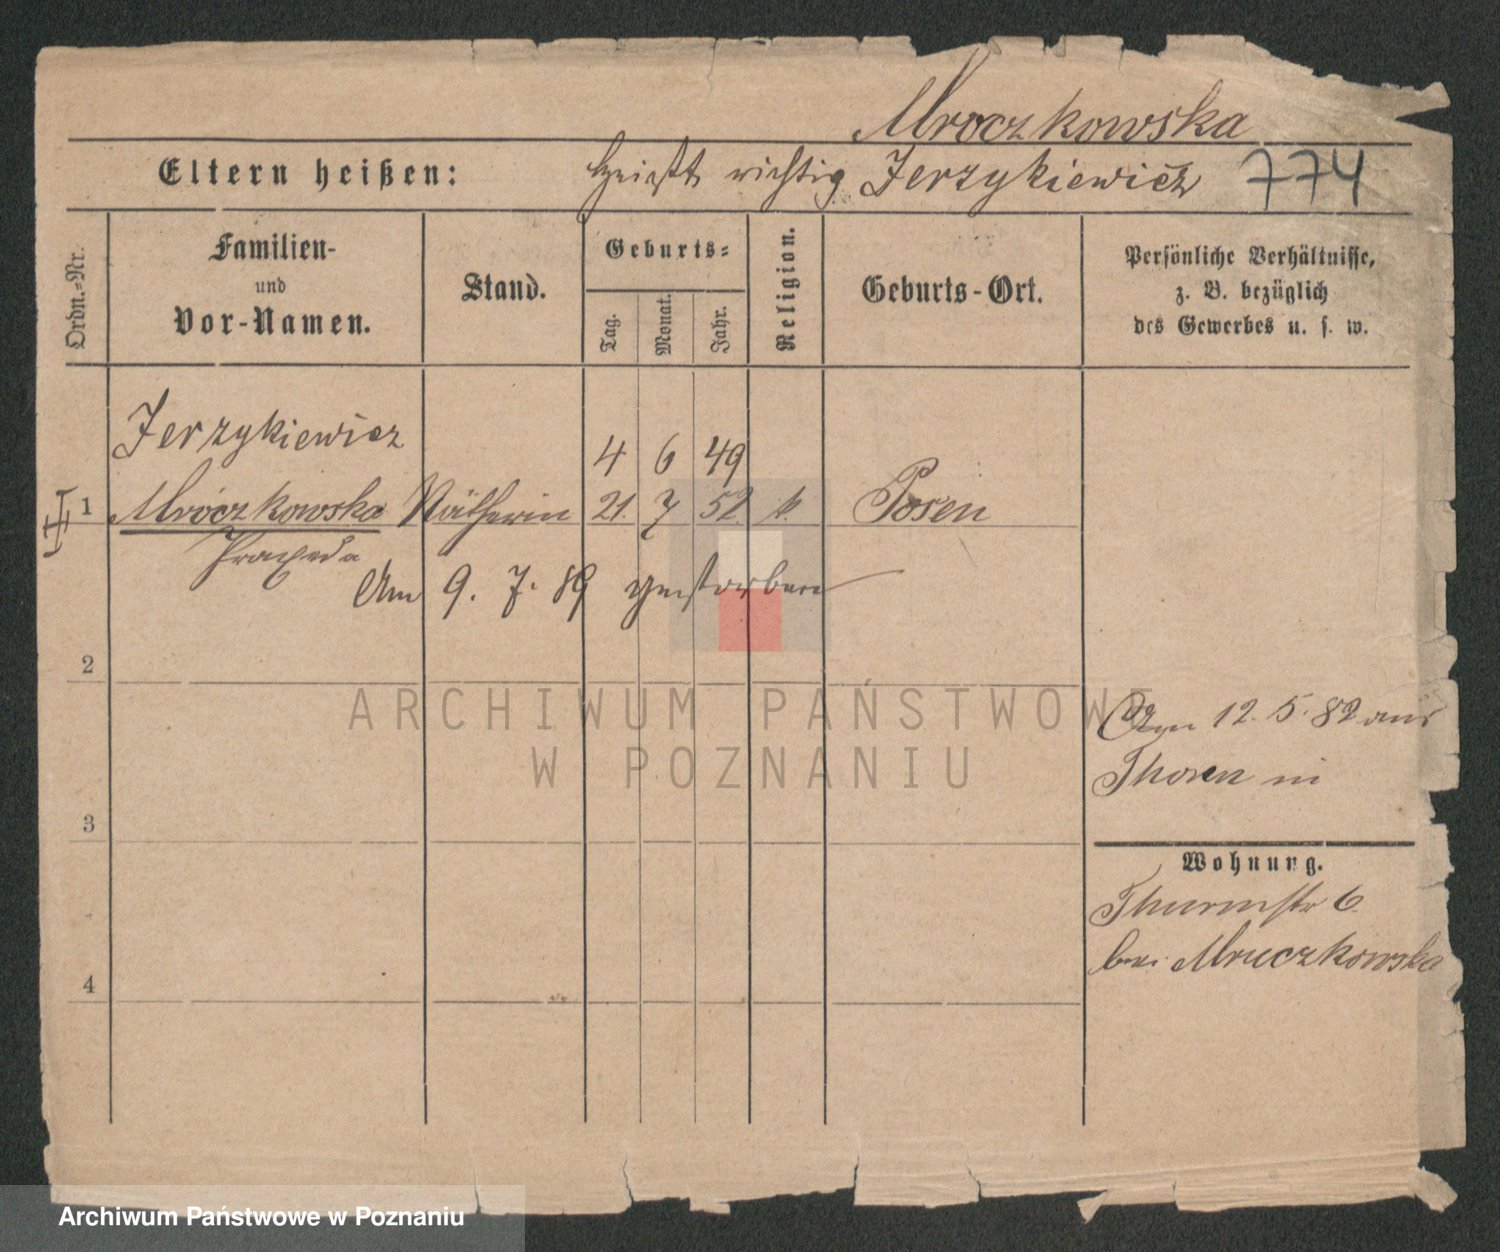 Mroczkowska
Eltern heißen: heißt richtig Jerzykiewicz 774
Ordn.-Nr.
Familien-
und
Vor-Namen.
Stand.
Geburts-
Tag.
Monat.
Jahr.
Religion.
Geburts-Ort.
Persönliche Verhältnisse,
z. B. bezüglich
des Gewerbes u. s. w.
Jerzykiewicz 4 6 49
1 Mroczkowska Nätherin 21. 7 52. k. Posen
Praxeda
Am 9. 7. 89 gestorben
2
ARCHIWUM PAŃSTWOWE
W POZNANIU
Am 12. 5. 82 aus
Thoren in
3
Wohnung.
Thurmstr 6.
bei Mruczkowska
4
Archiwum Państwowe w Poznaniu